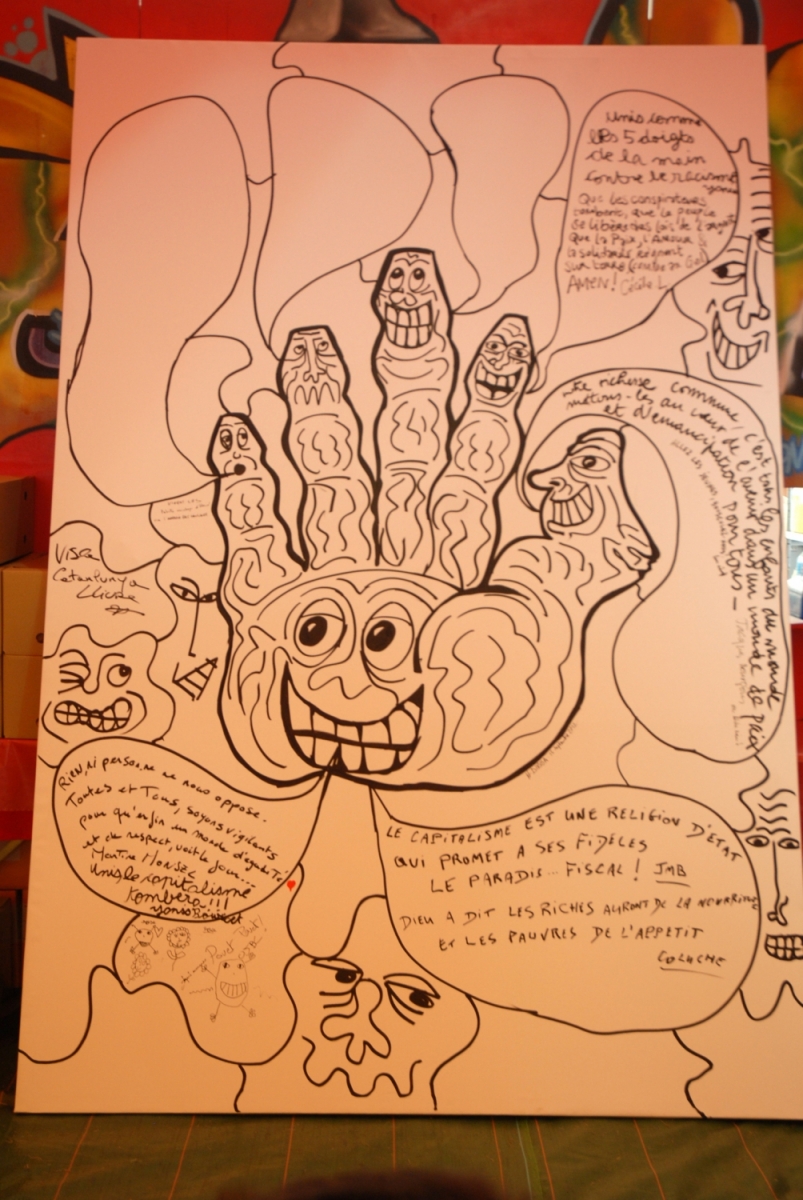 Unis comme
les 5 doigts
de la main
contre le racisme
Que les conspirateurs
tombent, que le peuple
se libère des lois de l'argent
que la Paix, l'Amour &
la solidarité règnent
sur terre
AMEN! Cécile L
richesse commune, c'est tous les enfants du monde
mettons-les au cœur de l'avenir dans un monde de paix
et d'émancipation pour tous
Visca
Catalunya
Lliure
Rien, ni personne ne nous oppose.
Toutes et Tous, soyons vigilants
pour qu'enfin un monde d'égalité
et de respect, voit le jour...
Martine
Unis le capitalisme
tombera!!!
LE CAPITALISME EST UNE RELIGION D'ETAT
QUI PROMET A SES FIDÈLES
LE PARADIS... FISCAL ! JMB
DIEU A DIT LES RICHES AURONT DE LA NOURRITURE
ET LES PAUVRES DE L'APPETIT
COLUCHE